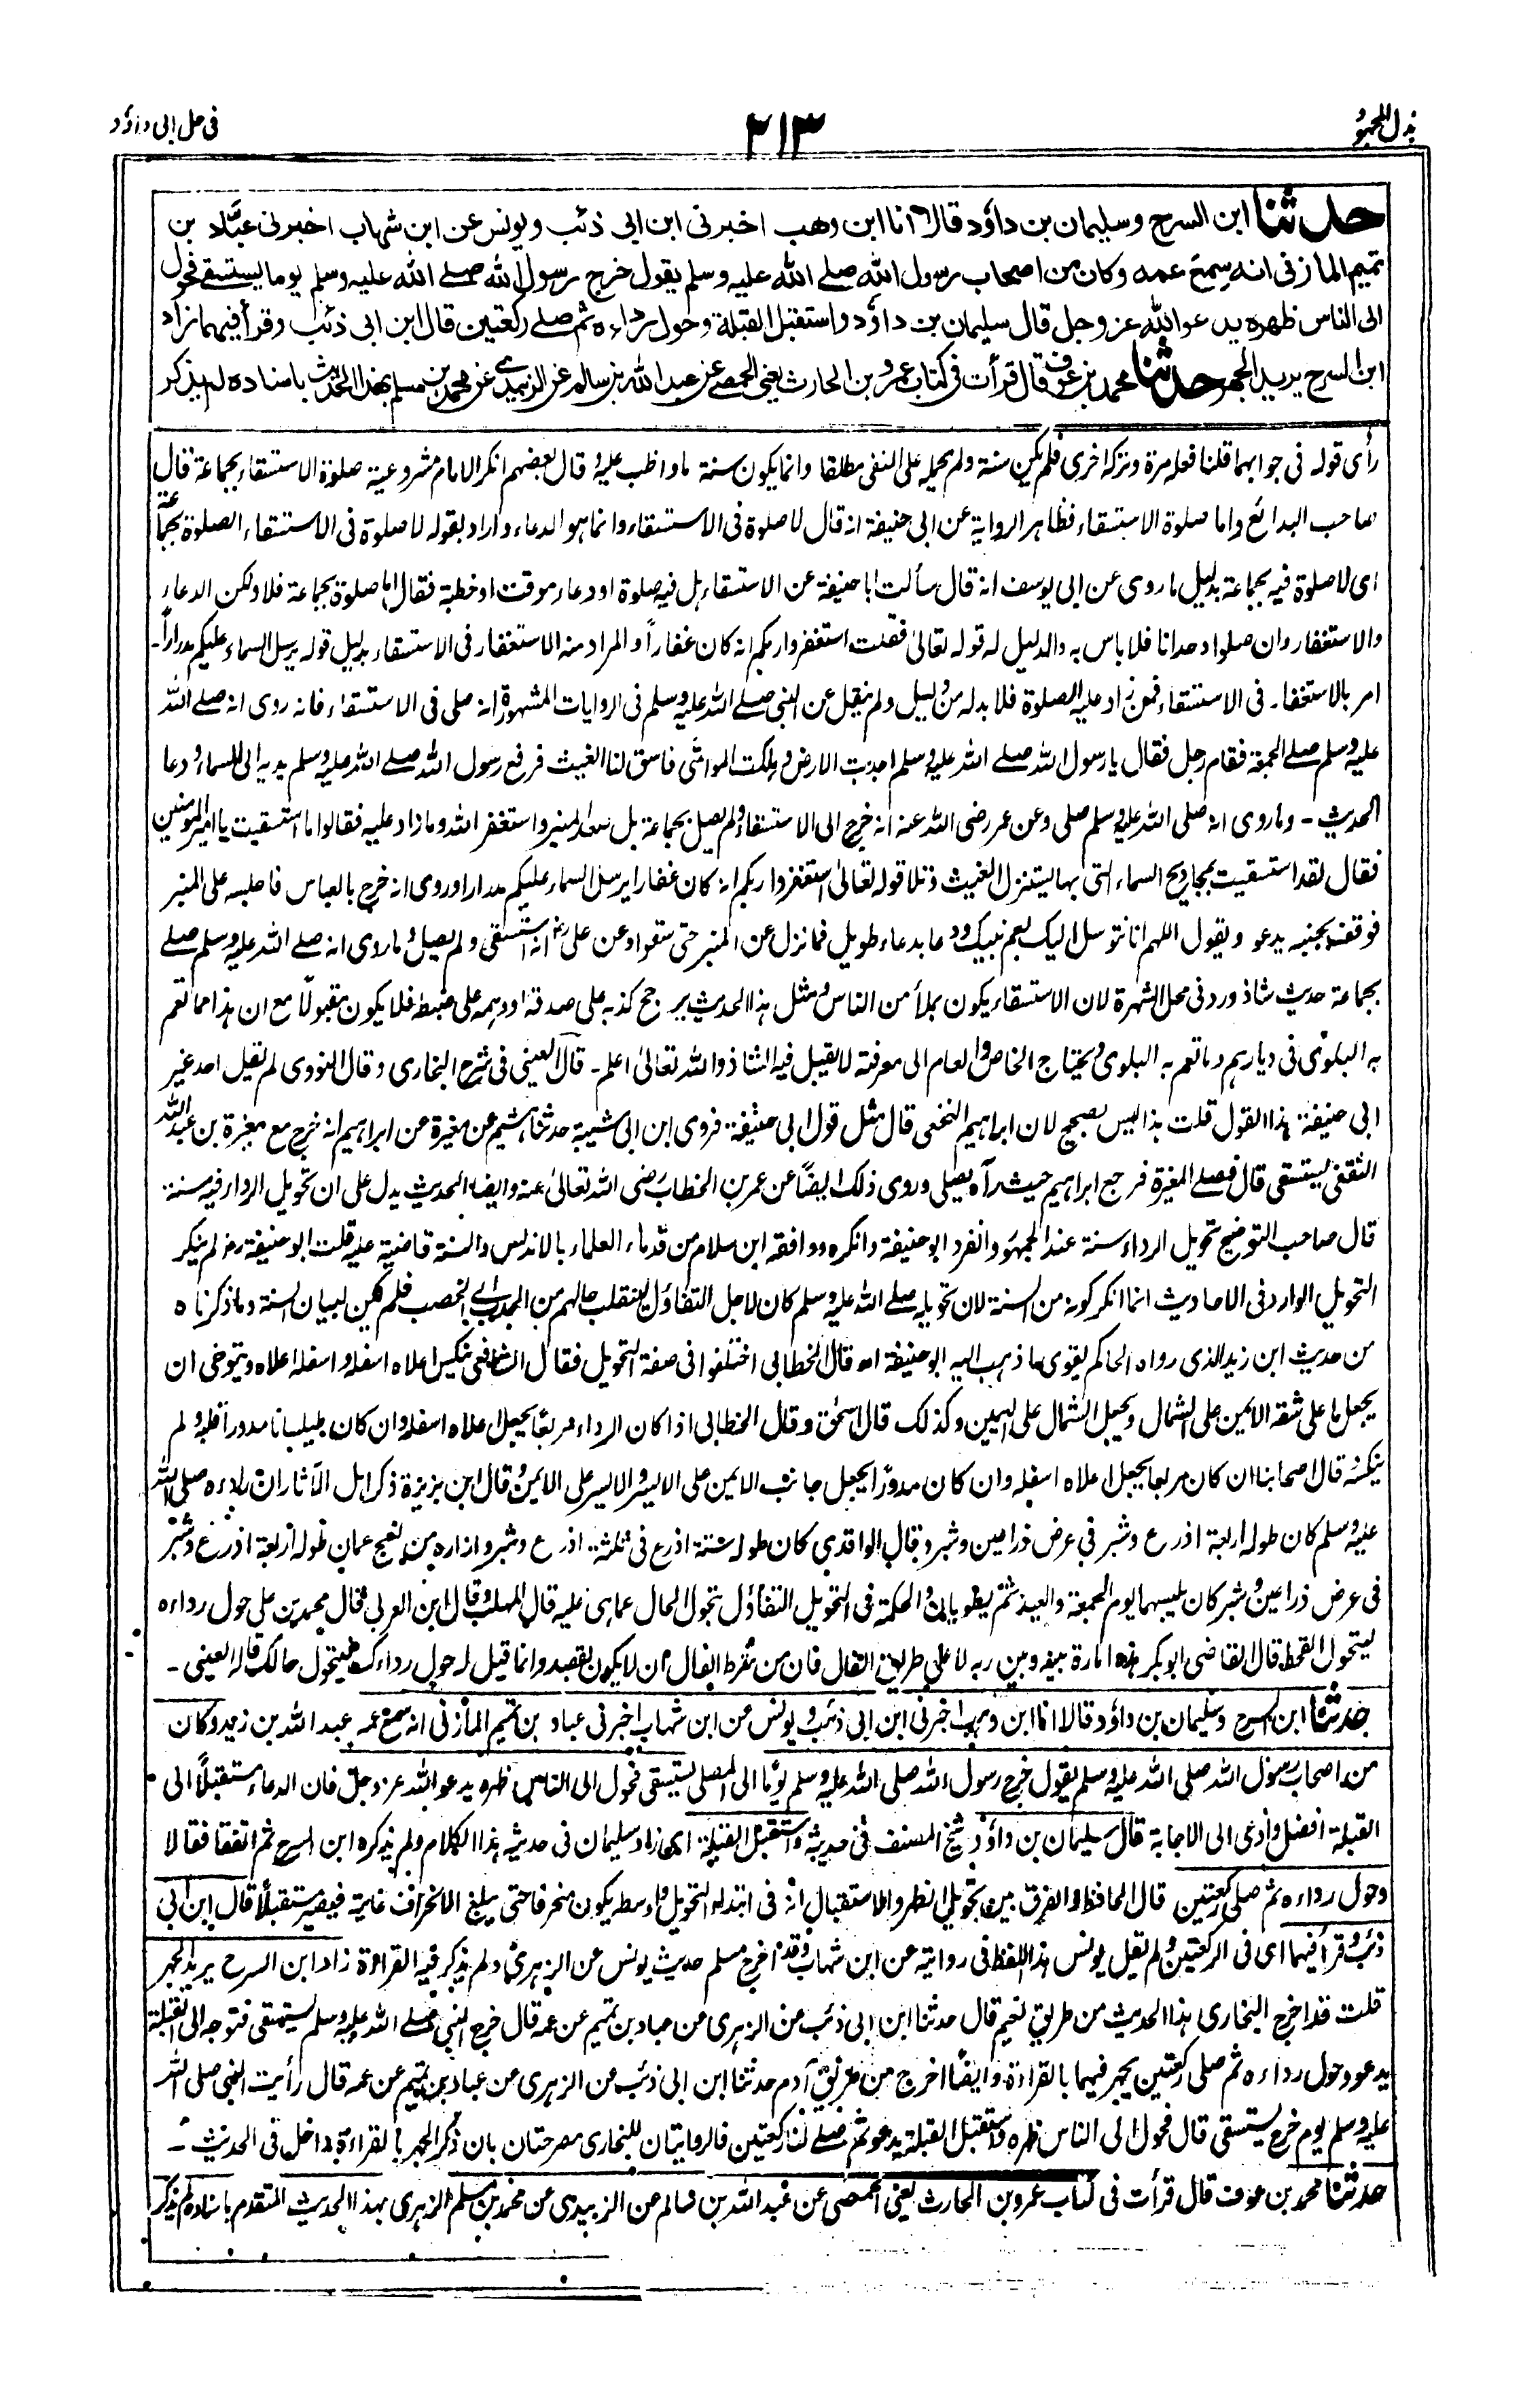 بذل المجهود
٢١٣
فى حل ابى داؤد
حدثنا ابن السرح وسليمان بن داؤد قالا انا ابن وهب اخبرنى ابن ابى ذئب ويونس عن ابن شهاب اخبرنى عبّاد بن
تميم المازنى انه سمع عمه وكان من اصحاب رسول الله صلے الله عليه وسلم يقول خرج رسول الله صلے الله عليه وسلم يوما يستسقے فحول
الى الناس ظهره يدعو الله عزوجل قال سليمان بن داؤد واستقبل القبلة وحول رداءه ثم صلے ركعتين قال ابن ابى ذئب وقرأ فيهما زاد
ابن السرح يريد الجهر حدثنا محمد بن عوف قال قرأت فى كتاب عمرو بن الحارث يعنى الحمصے عن عبد الله بن سالم عن الزبيدے عن محمد بن مسلم بهذا الحديث باسناده لم يذكر
رأى قوله فى جوابهما قلنا فعله مرة وتركه اخرى فلم يكن سنة ولم يحمله على النفى مطلقا وانما يكون سنة ما واظب عليه وقال بعضهم انكر الامام مشروعية صلوة الاستسقاء بجماعة قال
صاحب البدائع واما صلوة الاستسقاء فظاهر الرواية عن ابى حنيفة انه قال لا صلوة فى الاستسقاء وانما هو الدعاء واراد بقوله لا صلوة فى الاستسقاء الصلوة بجماعة
اى لا صلوة فيه بجماعة بدليل ما روى عن ابى يوسف انه قال سألت ابا حنيفة عن الاستسقاء هل فيه صلوة او دعاء موقت او خطبة فقال اما صلوة بجماعة فلا ولكن الدعاء
والاستغفار وان صلوا وحدانا فلا باس به والدليل له قوله تعالىٰ فقلت استغفروا ربكم انه كان غفاراً والمراد منه الاستغفار فى الاستسقاء بدليل قوله يرسل السماء عليكم مدراراً۔
امر بالاستغفار فى الاستسقاء فمن زاد عليه الصلوة فلا بد له من دليل ولم ينقل عن النبى صلے الله عليه وسلم فى الروايات المشهورة انه صلى فى الاستسقاء فانه روى انه صلے الله
عليه وسلم صلے الجمعة فقام رجل فقال يا رسول الله صلے الله عليه وسلم اجدبت الارض وهلكت المواشى فاسق لنا الغيث فرفع رسول الله صلے الله عليه وسلم يديه الى السماء ودعا
الحديث ۔ وما روى انه صلى الله عليه وسلم صلى وعن عمر رضى الله عنه انه خرج الى الاستسقاء ولم يصل بجماعة بل صعد المنبر واستغفر الله وما زاد عليه فقالوا ما استسقيت يا امير المؤمنين
فقال لقد استسقيت بمجاديح السماء التى بها يستنزل الغيث وتلا قوله تعالىٰ استغفروا ربكم انه كان غفارا يرسل السماء عليكم مدرارا وروى انه خرج بالعباس فاجلسه على المنبر
فوقف بجنبه يدعو ويقول اللهم انا نتوسل اليك بعم نبيك ودعا بدعاء طويل فما نزل عن المنبر حتى سقوا وعن على رضـ انه استسقى ولم يصل وما روى انه صلے الله عليه وسلم صلے
بجماعة حديث شاذ ورد فى محل الشهرة لان الاستسقاء يكون بملأ من الناس ومثل هذا الحديث يرجح كذبه على صدقه او وهمه على ضبطه فلا يكون مقبولا مع ان هذا مما تعم
به البلوىٰ فى ديارهم وما تعم به البلوىٰ ويحتاج الخاص والعام الى معرفته لا يقبل فيه الشاذ والله تعالىٰ اعلم ۔ قال العينى فى شرح البخارى وقال النووى لم يقل احد غير
ابى حنيفة هذا القول قلت هذا ليس بصحيح لان ابراهيم النخعى قال مثل قول ابى حنيفة فروى ابن ابى شيبة حدثنا هشيم عن مغيرة عن ابراهيم انه خرج مع مغيرة بن عبد الله
الثقفى يستسقى قال فصلے المغيرة فرجع ابراهيم حيث رآه يصلى وروى ذلك ايضاً عن عمر بن الخطاب رضى الله تعالىٰ عنه وايضا الحديث يدل على ان تحويل الرداء فيه سنة
قال صاحب التوضيح تحويل الرداء سنة عند الجمهور وانفرد ابو حنيفة وانكره ووافقه ابن سلام من قدماء العلماء بالاندلس والسنة قاضية عليه قلت ابو حنيفة رح لم ينكر
التحويل الوارد فى الاحاديث انما انكر كونه من السنة لان تحويله صلے الله عليه وسلم كان لاجل التفاؤل لينقلب حالهم من الجدب الى الخصب فلم يكن لبيان السنة وما ذكرناه
من حديث ابن زيد الذى رواه الحاكم يقوى ما ذهب اليه ابو حنيفة اه قال الخطابى اختلفوا فى صفة التحويل فقال الشافعى ينكس اعلاه اسفله واسفله اعلاه ويتوخى ان
يجعل ما على شقه الايمن على الشمال ويجعل الشمال على اليمين وكذلك قال اسحٰق وقال الخطابى اذا كان الرداء مربعاً يجعل اعلاه اسفله وان كان طيلسانا مدورا قلبه ولم
ينكسه قال اصحابنا ان كان مربعا يجعل اعلاه اسفله وان كان مدورًا يجعل جانب الايمن على الايسر والايسر على الايمن وقال ابن بزيزة ذكر اهل الآثار ان رداءه صلى الله
عليه وسلم كان طوله اربعة اذرع وشبر فى عرض ذراعين وشبر وقال الواقدى كان طوله ستة اذرع فى ثلثة اذرع وشبر وازاره من نسج عمان طوله اربعة اذرع وشبر
فى عرض ذراعين وشبر كان يلبسهما يوم الجمعة والعيد ثم يطويان والحكمة فى التحويل التفاؤل بتحول الحال عما هى عليه قال المهلب وقال ابن العربى قال محمد بن على حول رداءه
ليتحول القحط قال القاضى ابو بكر هذه امارة بينه وبين ربه لا على طريق الفال فان من شرط الفال ان لا يكون بقصد وانما قيل له حول رداءك فيتحول حالك قاله العينى ۔
حدثنا ابن السرح وسليمان بن داؤد قالا انا ابن وهب اخبرنى ابن ابى ذئب ويونس عن ابن شهاب اخبرنى عباد بن تميم المازنى انه سمع عمه عبد الله بن زيد وكان
من اصحاب رسول الله صلى الله عليه وسلم يقول خرج رسول الله صلى الله عليه وسلم يوما الى المصلى يستسقى فحول الى الناس ظهره يدعو الله عزوجل فان الدعاء مستقبلاً الى
القبلة افضل وادعى الى الاجابة قال سليمان بن داؤد شيخ المصنف فى حديثه واستقبل القبلة اى زاد سليمان فى حديثه هذا الكلام ولم يذكره ابن السرح ثم اتفقا فقالا
وحول رداءه ثم صلى ركعتين قال الحافظ والفرق بين تحويل الظهر والاستقبال انه فى ابتداء التحويل واوسطه يكون منحرفا حتى يبلغ الانحراف غايته فيصير مستقبلاً قال ابن ابى
ذئب وقرأ فيهما اى فى الركعتين ولم يقل يونس هذا اللفظ فى روايته عن ابن شهاب وقد اخرج مسلم حديث يونس عن الزهرى ولم يذكر فيه القراءة زاد ابن السرح يريد الجهر
قلت قد اخرج البخارى هذا الحديث من طريق نعيم قال حدثنا ابن ابى ذئب عن الزهرى عن عباد بن تميم عن عمه قال خرج النبى صلے الله عليه وسلم يستسقى فتوجه الى القبلة
يدعو وحول رداءه ثم صلى ركعتين يجهر فيهما بالقراءة وايضًا اخرج من طريق آدم حدثنا ابن ابى ذئب عن الزهرى عن عباد بن تميم عن عمه قال رأيت النبى صلى الله
عليه وسلم يوم خرج يستسقى قال فحول الى الناس ظهره واستقبل القبلة يدعو ثم صلے لنا ركعتين فالروايتان للبخارى مصرحتان بان ذكر الجهر بالقراءة داخل فى الحديث ۔
حدثنا محمد بن عوف قال قرأت فى كتاب عمرو بن الحارث يعنى الحمصى عن عبد الله بن سالم عن الزبيدى عن محمد بن مسلم الزهرى بهذا الحديث المتقدم باسناده لم يذكر